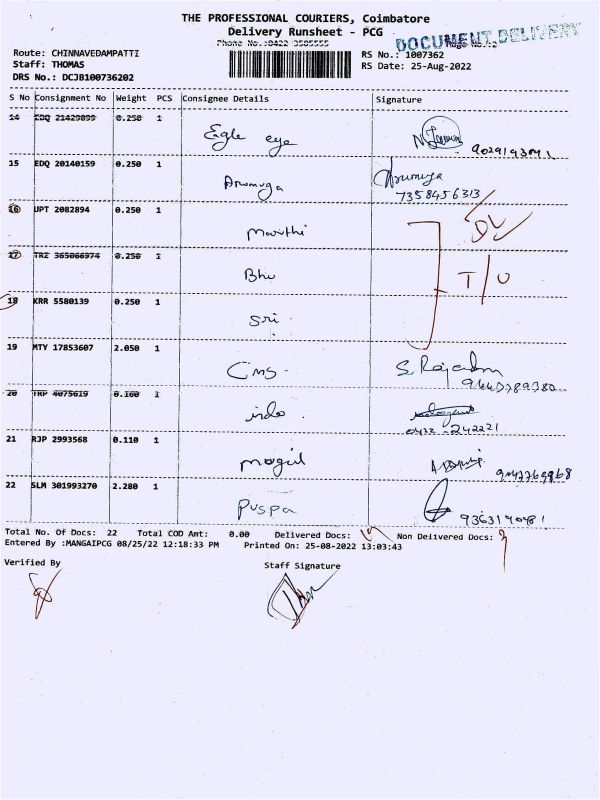 THE PROFESSIONAL COURIERS, Coimbatore
Delivery Runsheet - PCG
Phone No.:0422 3505555
DOCUMENT DELIVERY
Route: CHINNAVEDAMPATTI
RS No.: 1007362
Staff: THOMAS
RS Date: 25-Aug-2022
DRS No.: DCJB100736202
S No Consignment No Weight PCS Consignee Details Signature
14 EDQ 21429899 0.250 1
Eagle eye
15 EDQ 20140159 0.250 1
Arumuga Arumuga
7358456313
16 UPT 2082894 0.250 1
Maruthi
17 TRZ 365066974 0.250 1
Bhu T/U
18 KRR 5580139 0.250 1
Sri
19 MTY 17853607 2.050 1
Cms. S. Rajendran
20 TRP 4075619 0.160 1
indo
0422-242221
21 RJP 2993568 0.110 1
mogul
22 SLM 301993270 2.280 1
Puspa
Total No. Of Docs: 22 Total COD Amt: 0.00 Delivered Docs: 19 Non Delivered Docs: 3
Entered By :MANGAIPCG 08/25/22 12:18:33 PM Printed On: 25-08-2022 13:03:43
Verified By Staff Signature